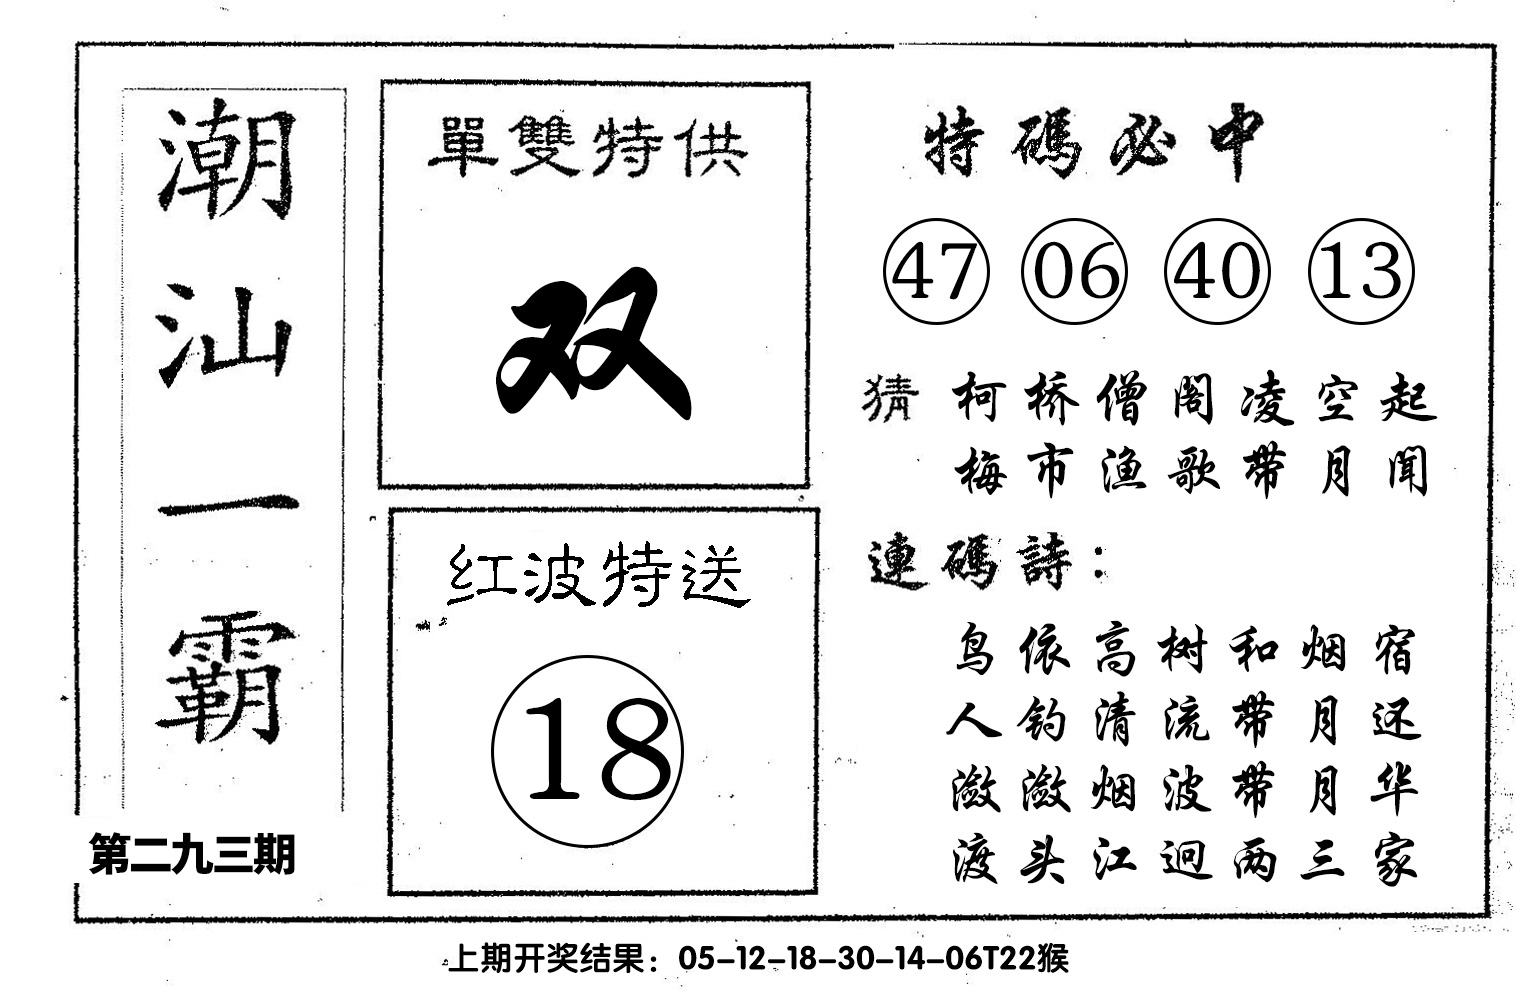 潮汕一霸
第二九三期
單雙特供
双
红波特送
18
特碼必中
47 06 40 13
猜 柯桥僧阁凌空起
梅市渔歌带月闻
連碼詩：
鸟依高树和烟宿
人钓清流带月还
潋潋烟波带月华
渡头江迥两三家
上期开奖结果：05-12-18-30-14-06T22猴